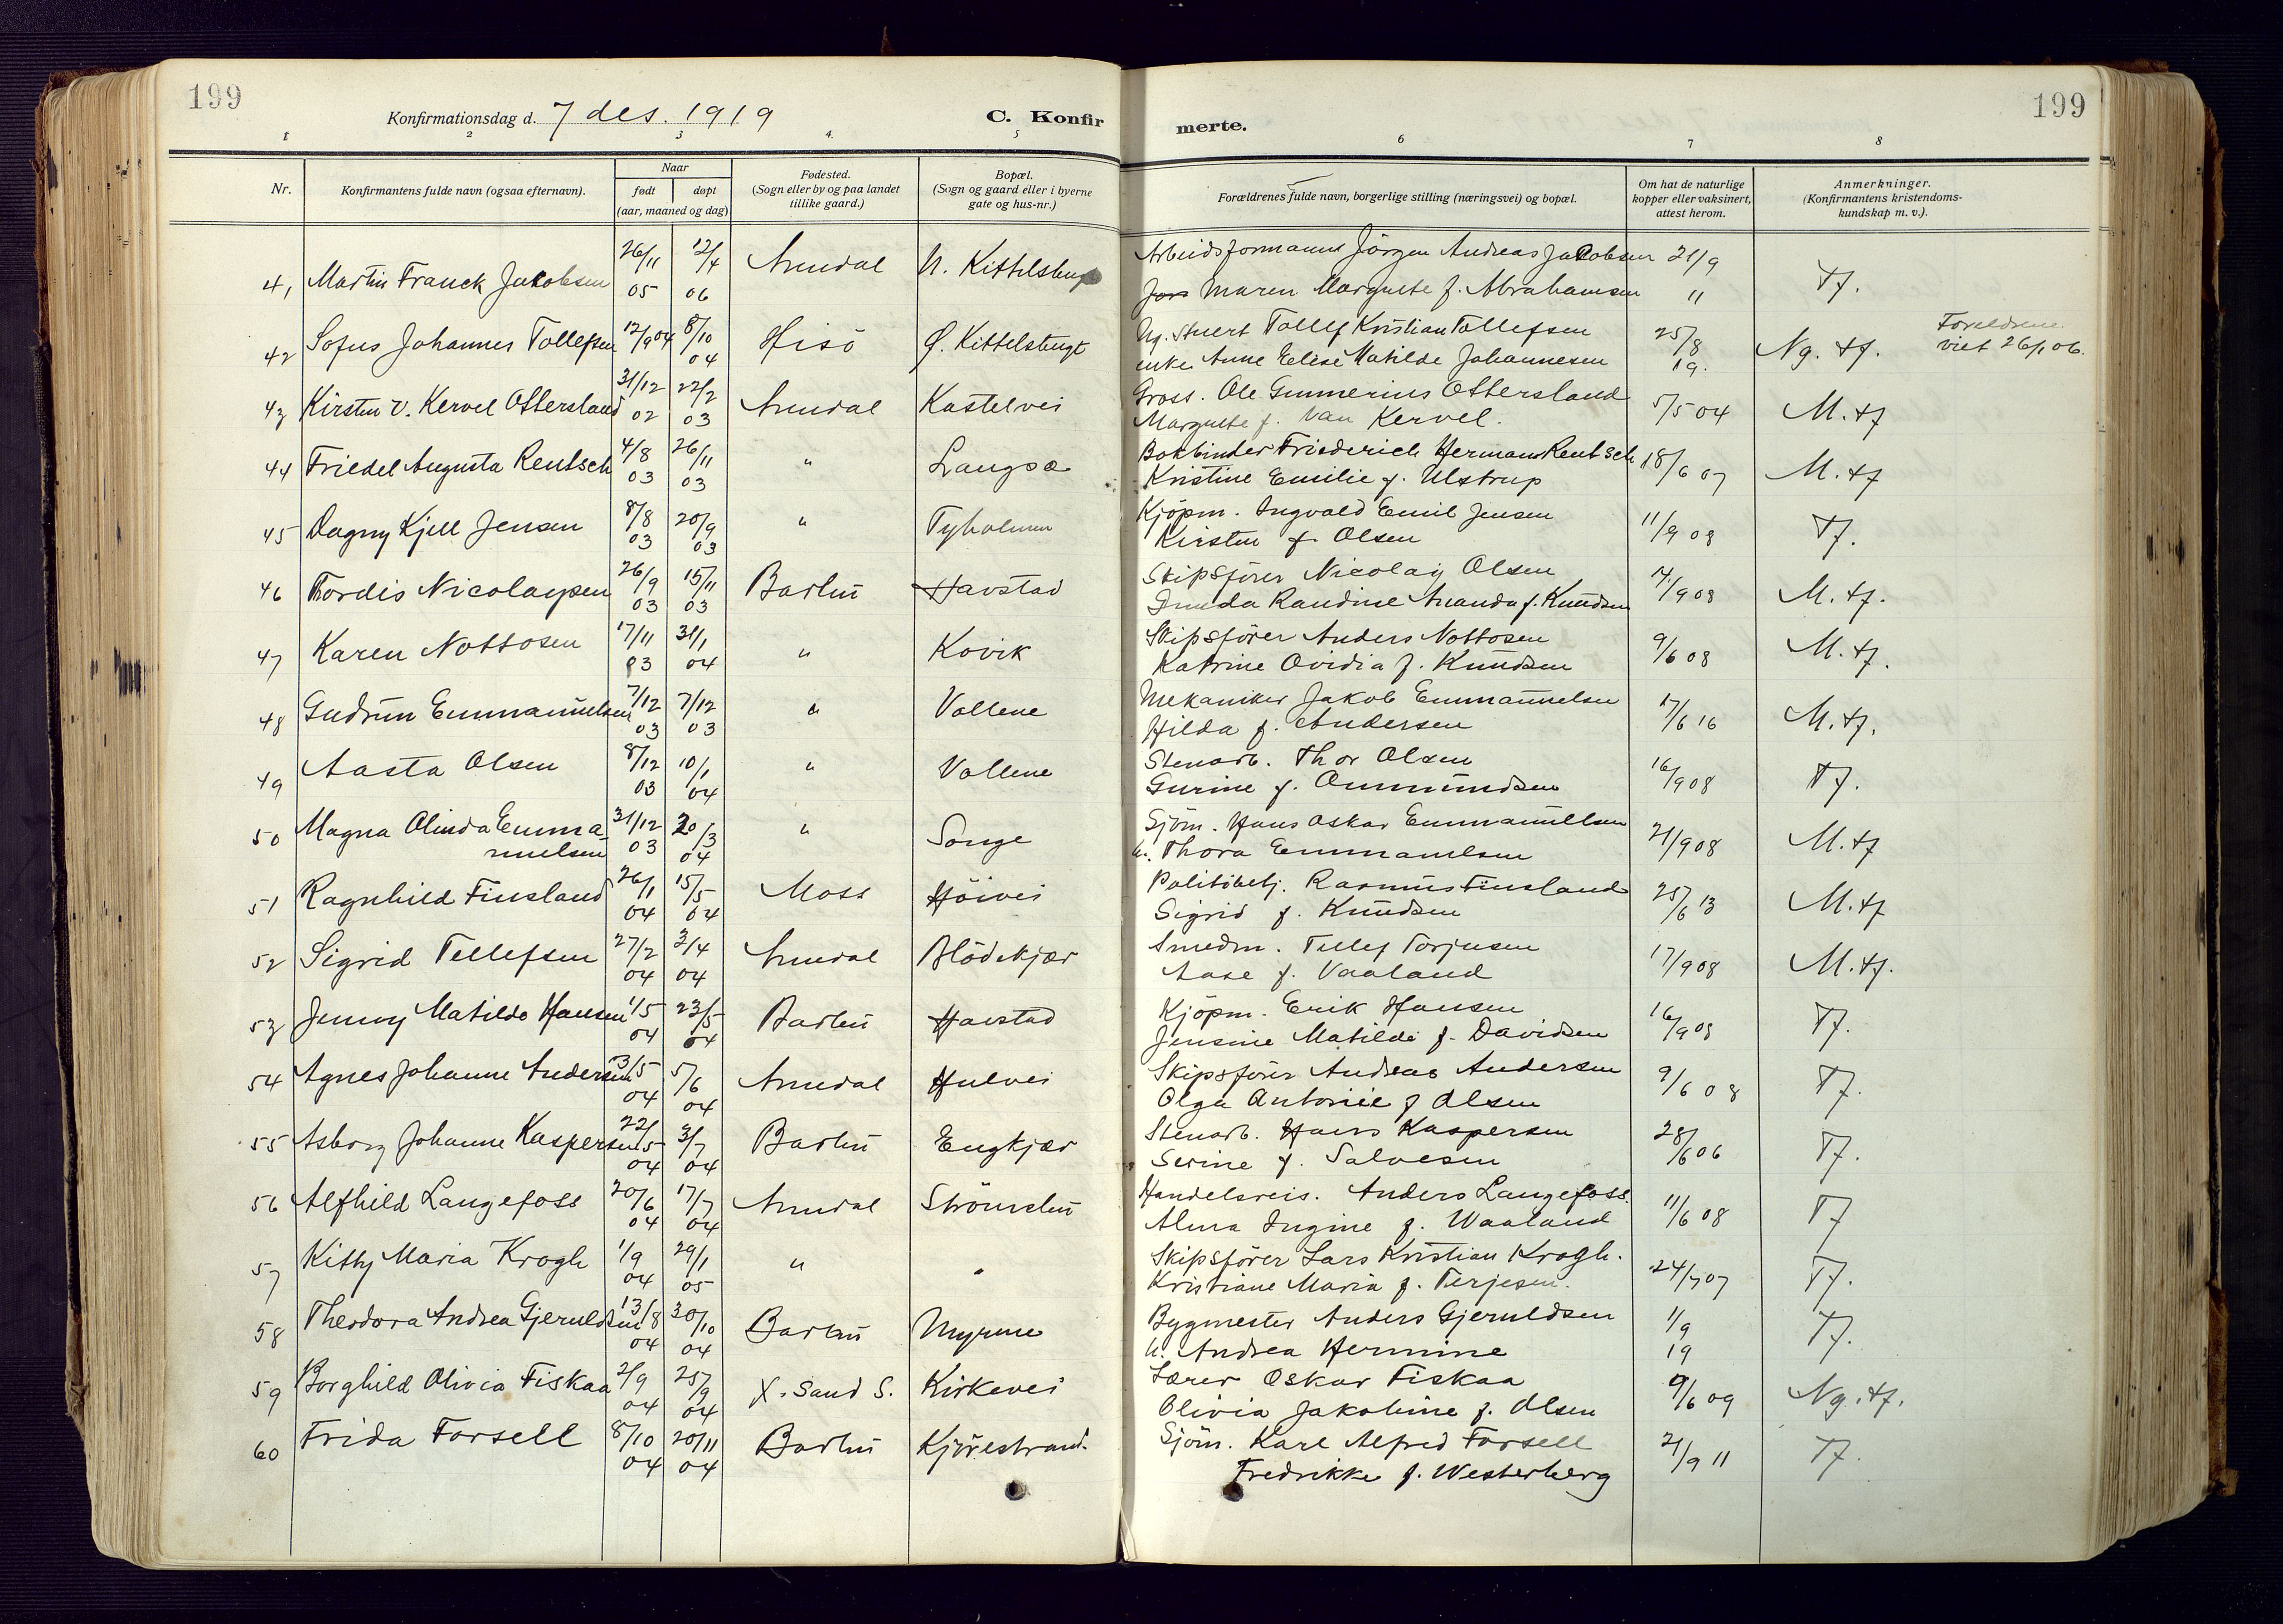 199
199
Konfirmationsdag d. 7 des. 1919
C. Konfir
merte.
1 2 3 4. 5 6 7 8
Nr.
Konfirmantens fulde navn (ogsaa efternavn).
Naar
født døpt
(aar, maaned og dag)
Fødested.
(Sogn eller by og paa landet
tillike gaard.)
Bopæl.
(Sogn og gaard eller i byerne
gate og hus-nr.)
Forældrenes fulde navn, borgerlige stilling (næringsvei) og bopæl.
Om hat de naturlige
kopper eller vaksinert,
attest herom.
Anmerkninger.
(Konfirmantens kristendoms-
kundskap m. v.).
41 Martin Franck Jakobsen 26/11 05 12/4 06 Arendal N. Kittelsbugt
Arbeidsformann Jörgen Andreas Jakobsen 21/9
Maren Margrete f. Abrahamsen 11 Tf.
42 Sofus Johannes Tollefsen 12/9 04 8/10 04 Hisö Ø. Kittelsbugt
Ug. Stuert Tollef Kristian Tollefsen 25/8 19. Ng. tf. Foreldrene
enke Anne Elise Matilde Johannesen viet 26/1 06.
43 Kirsten v. Kervel Ottersland 31/12 02 22/2 03 Arendal Kastelvei
Gross. Ole Gunnerius Ottersland 5/5 04 M. tf
Margrete f. Van Kervel.
44 Friedel Augusta Rentsch 4/8 03 26/11 03 " Langsæ
Bokbinder Friederich Herman Rentsch 18/6 07 M. tf
Kristine Emilie f. Ulstrup
45 Dagny Kjell Jensen 8/8 03 20/9 03 " Tyholmen
Kjöpm. Ingvald Emil Jensen 11/9 08 Tf.
Kirsten f. Olsen
46 Tordis Nicolaysen 26/9 03 15/11 03 Barbu Havstad
Skipsförer Nicolay Olsen 14/9 08 M. tf.
Randine Amanda f. Knudsen
47 Karen Nottosen 17/11 03 31/1 04 " Kovik
Skipsförer Anders Nottosen 9/6 08 M. tf.
Katrine Ovidia f. Knudsen
48 Gudrun Emmanuelsen 7/12 03 7/12 03 " Vollene
Mekaniker Jakob Emmanuelsen 17/6 16 M. tf.
Hilda f. Andersen
49 Aasta Olsen 8/12 03 10/1 04 " Vollene
Stenarb. Thor Olsen 16/9 08 Tf.
Gurine f. Ommundsen
50 Magna Olinda Emma
nuelsen 31/12 03 20/3 04 " Songe
Sjöm. Hans Oskar Emmanuelsen 21/9 08 M. tf
h. Thora Emmanuelsen
51 Ragnhild Finsland 26/1 04 15/5 04 Moss Höivei
Politibetj. Rasmus Finsland 25/6 13 M. tf
Sigrid f. Knudsen
52 Sigrid Tellefsen 27/2 04 3/4 04 Arendal Blödekjær
Smedm. Tellef Torjusen 17/9 08 M. tf.
Aase f. Vaaland
53 Jenny Matilde Hansen 1/5 04 23/5 04 Barbu Havstad
Kjöpm. Erik Hansen 16/9 08 Tf.
Jensine Matilde f. Davidsen
54 Agnes Johanne Andersen 13/5 04 5/6 04 Arendal Hulvei
Skipsförer Andreas Andersen 9/6 08 Tf.
Olga Antonie f Olsen
55 Asborg Johanne Kaspersen 22/5 04 3/7 04 Barbu Engkjær
Stenarb. Hans Kaspersen 28/6 06 Tf.
Serine f. Salvesen
56 Alfhild Langefoss 20/6 04 17/7 04 Arendal Strömsbu
Handelsreis. Anders Langefoss. 11/6 08 Tf
Alma Ingine f. Waaland
57 Kitty Maria Krogh 1/9 04 29/1 05 " "
Skipsförer Lars Kristian Krogh. 24/7 07 Tf.
Kristiane Maria f. Terjesen.
58 Theodora Andrea Gjeruldsen 13/8 04 30/10 04 Barbu Myrene
Bygmester Anders Gjeruldsen 1/9 19 Tf.
h. Andrea Hermine
59 Borghild Olivia Fiskaa 2/9 04 25/9 04 X. Sand S. Kirkevei
Lærer Oskar Fiskaa 9/6 09 Ng. tf.
Olivia Jakobine f. Olsen
60 Frida Forsell 8/10 04 20/11 04 Barbu Kjörestrand.
Sjöm. Karl Alfred Forsell 21/9 11 Tf.
Fredrikke f. Westerberg